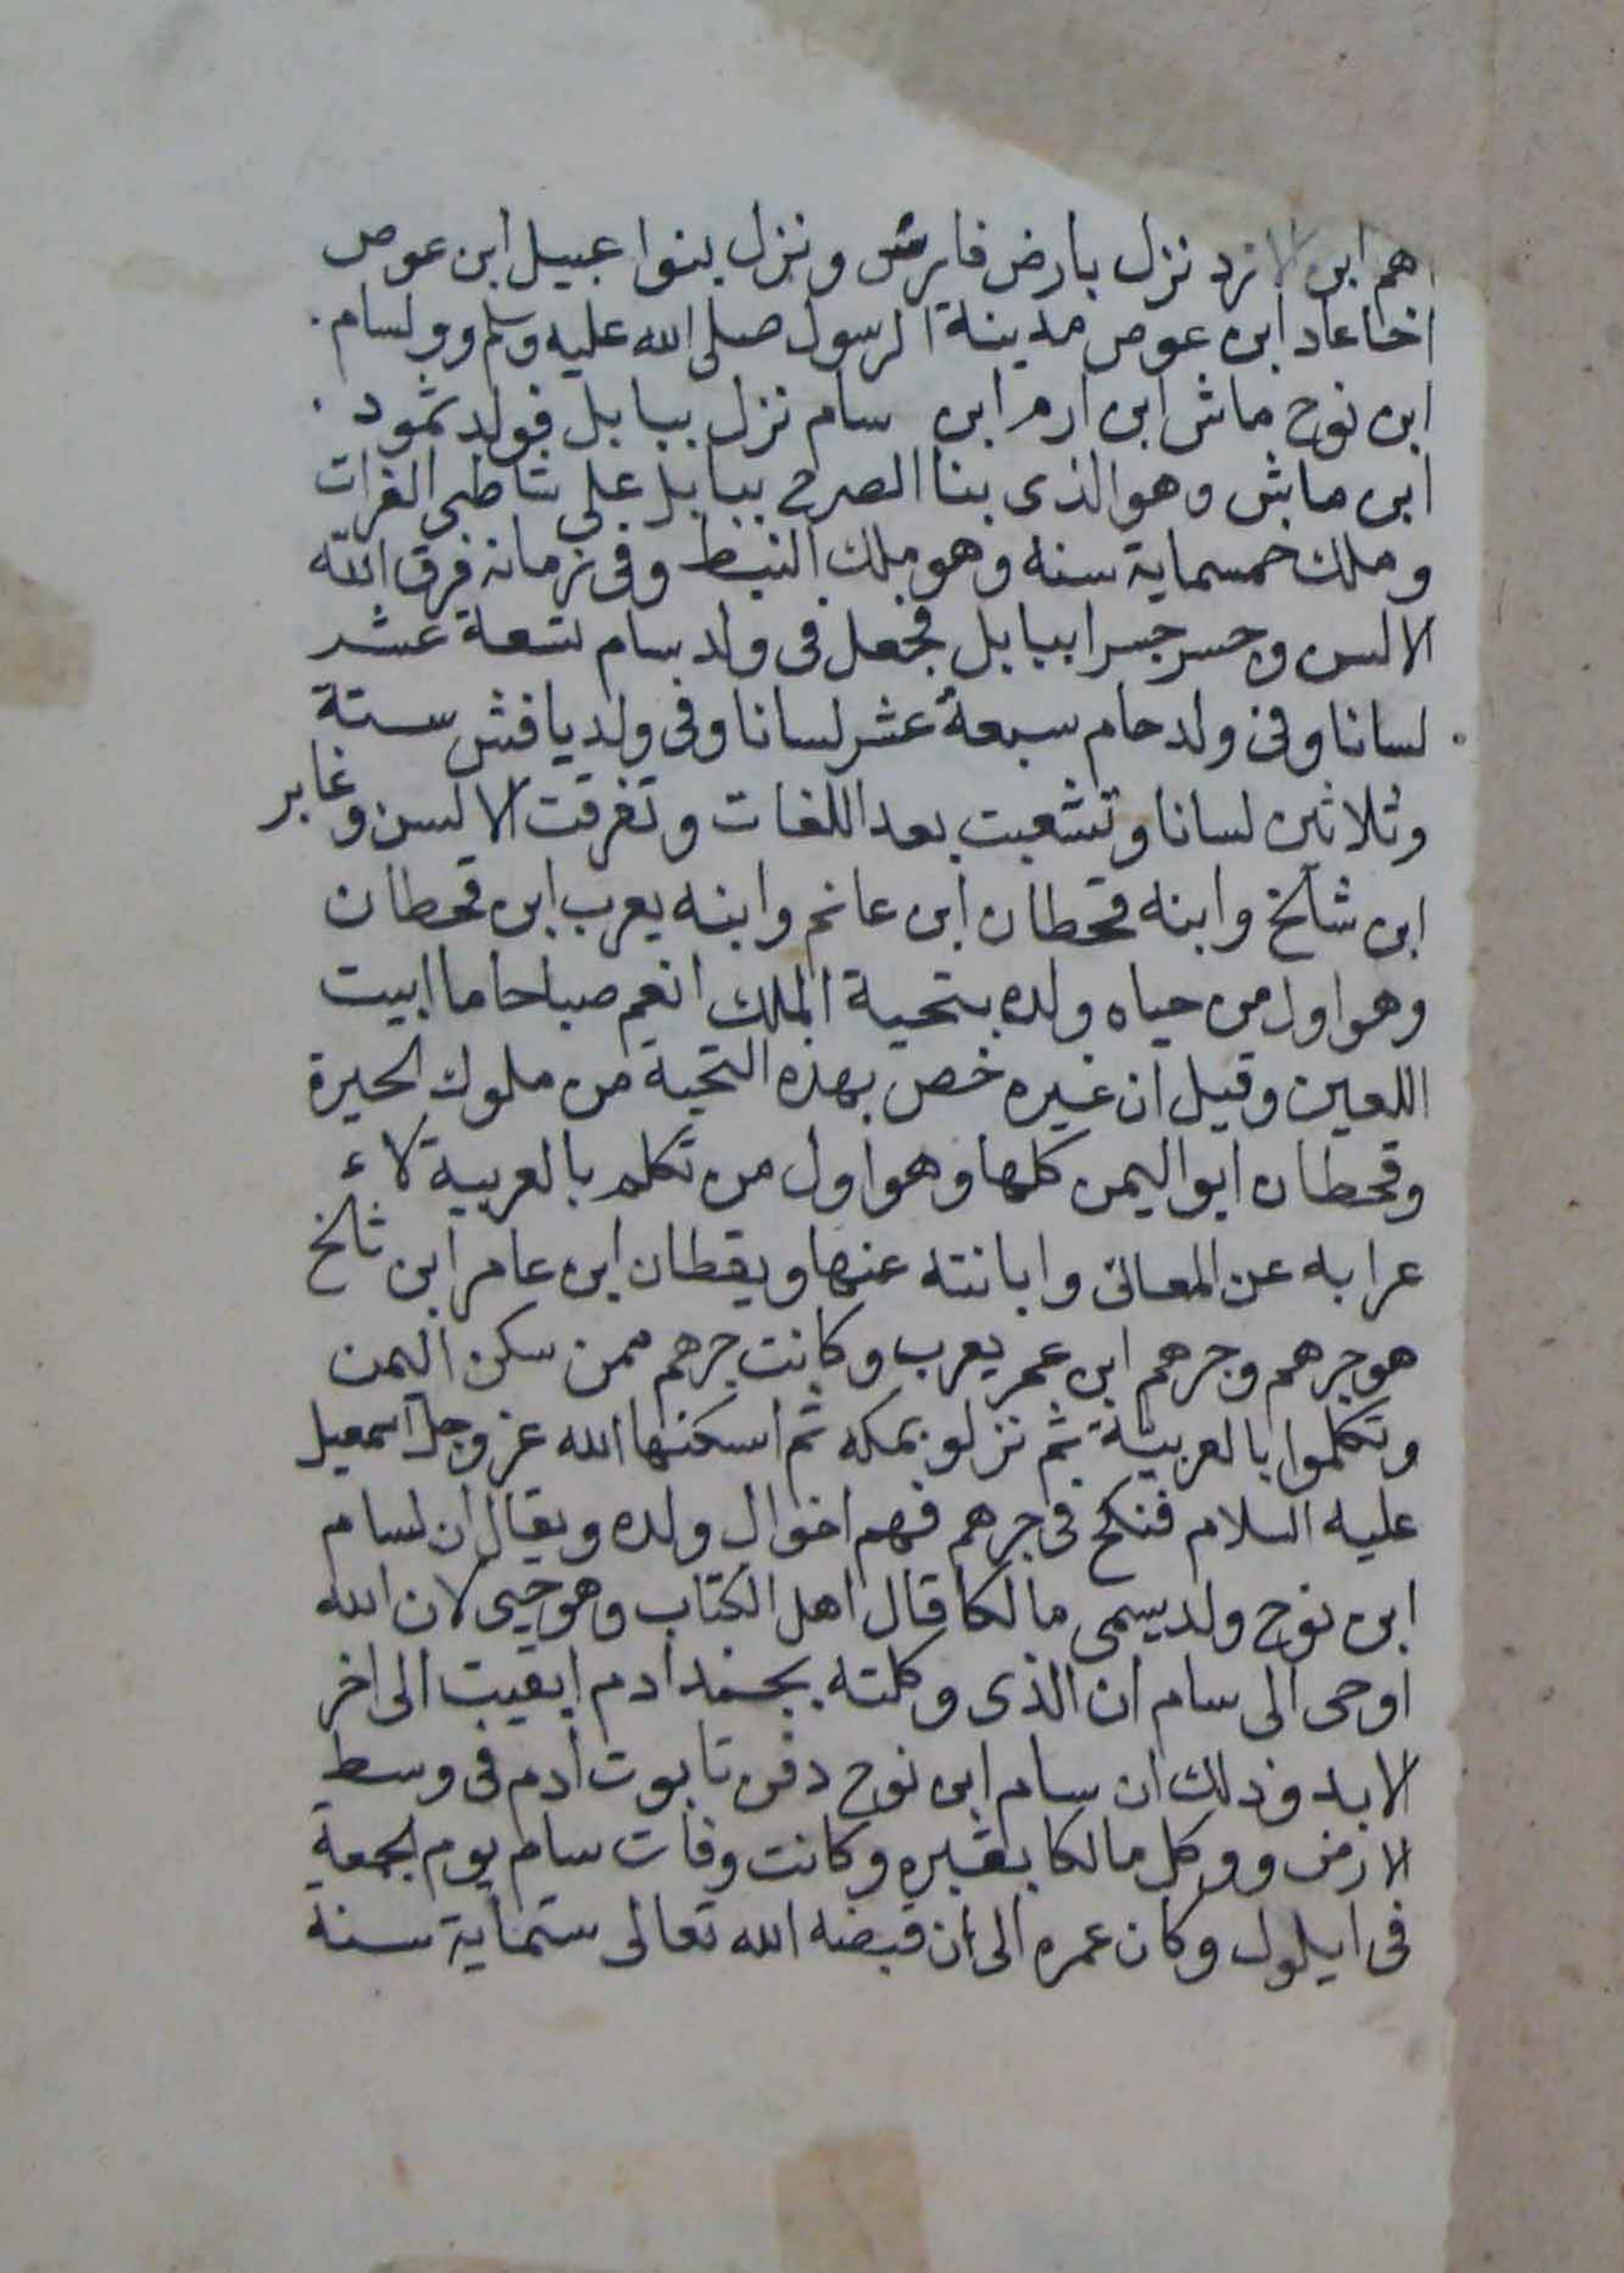 اهم ابن لا نرد نزل بارض فارس ونزل بنوا عبيل ابن عوص
اخا عاد ابن عوص مدينة الرسول صلى الله عليه وسلم وولسام.
ابن نوح ماش ابن ارم ابن سام نزل ببابل فولد ثمود.
ابن ماش وهو الذى بنا الصرح ببابل على شاطى الفرات
وملك خمسماية سنه وهو ملك النبط وفى زمانه فرق الله
الالسن وجسر جسرا ببابل فجعل فى ولد سام تسعة عشر
لسانا وفى ولد حام سبعة عشر لسانا وفى ولد يافث ستة
وثلاثين لسانا وتشعبت بعد اللغات وتفرقت الالسن وعابر
ابن شالخ وابنه قحطان ابن وابنه يعرب ابن قحطان
وهو اول من حياه ولده بتحية الملك انعم صباحا ما ابيت
اللعين وقيل ان غيره خص بهذه التحية من ملوك الحيرة
وقحطان ابو اليمن كلها وهو اول من تكلم بالعربية لاء
عرابه عن المعانى وابانته عنها ويقطان ابن عامر ابن شالخ
هو جرهم وجرهم ابن عم يعرب وكانت جرهم ممن سكن اليمن
وتكلموا بالعربية ثم نزلو بمكه ثم اسكنها الله عز وجل اسمعيل
عليه السلام فنكح فى جرهم فهم اخوال ولده ويقال ان لسام
ابن نوح ولد يسمى مالكا قال اهل الكتاب وهو حيى لان الله
اوحى الى سام ان الذى وكلته بجسد ادم ابقيت الى اخر
الابد وذلك ان سام ابن نوح دفن تابوت ادم فى وسط
الارض ووكل مالكا بقبره وكانت وفات سام يوم الجمعة
فى ايلول وكان عمره الى ان قبضه الله تعالى ستماية سنة